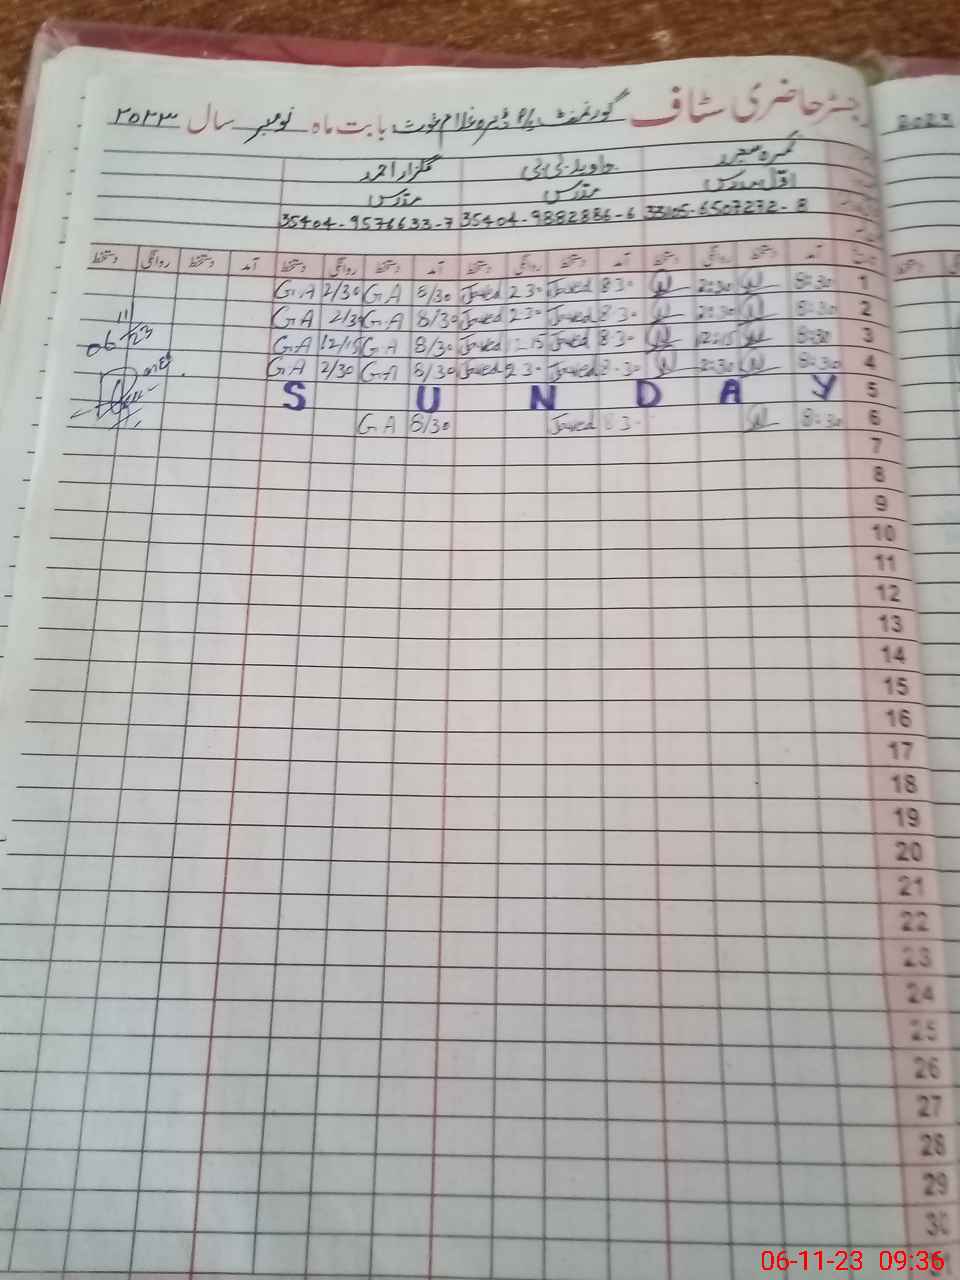 رجسٹر حاضری سٹاف گورنمنٹ P/S ڈیرہ غلام غوث بابت ماہ نومبر سال ۲۰۲۳
2023
گلزار احمد
اول مدرس مدرس مدرس
33105-6507272-8 35404-9882886-6 35404-9576633-7
آمد دستخط روانگی دستخط آمد دستخط روانگی دستخط آمد دستخط روانگی دستخط آمد دستخط روانگی دستخط
1 8:30 2:30 8 30 Javed 2 30 Javed 8/30 G.A 2/30 G.A
2 8:30 2:30 8 30 Javed 2 30 Javed 8/30 G.A 2/30 G.A
3 8:30 12:15 8 30 Javed 12 15 Javed 8/30 G.A 12/15 G.A
4 8:30 2:30 8-30 Javed 2 30 Javed 8/30 G.A 2/30 G.A
5 S U N D A Y
6 8:30 8 30 Javed 8/30 G.A
06/11/23
7
8
9
10
11
12
13
14
15
16
17
18
19
20
21
22
23
24
25
26
27
28
29
30
31
06-11-23 09:36